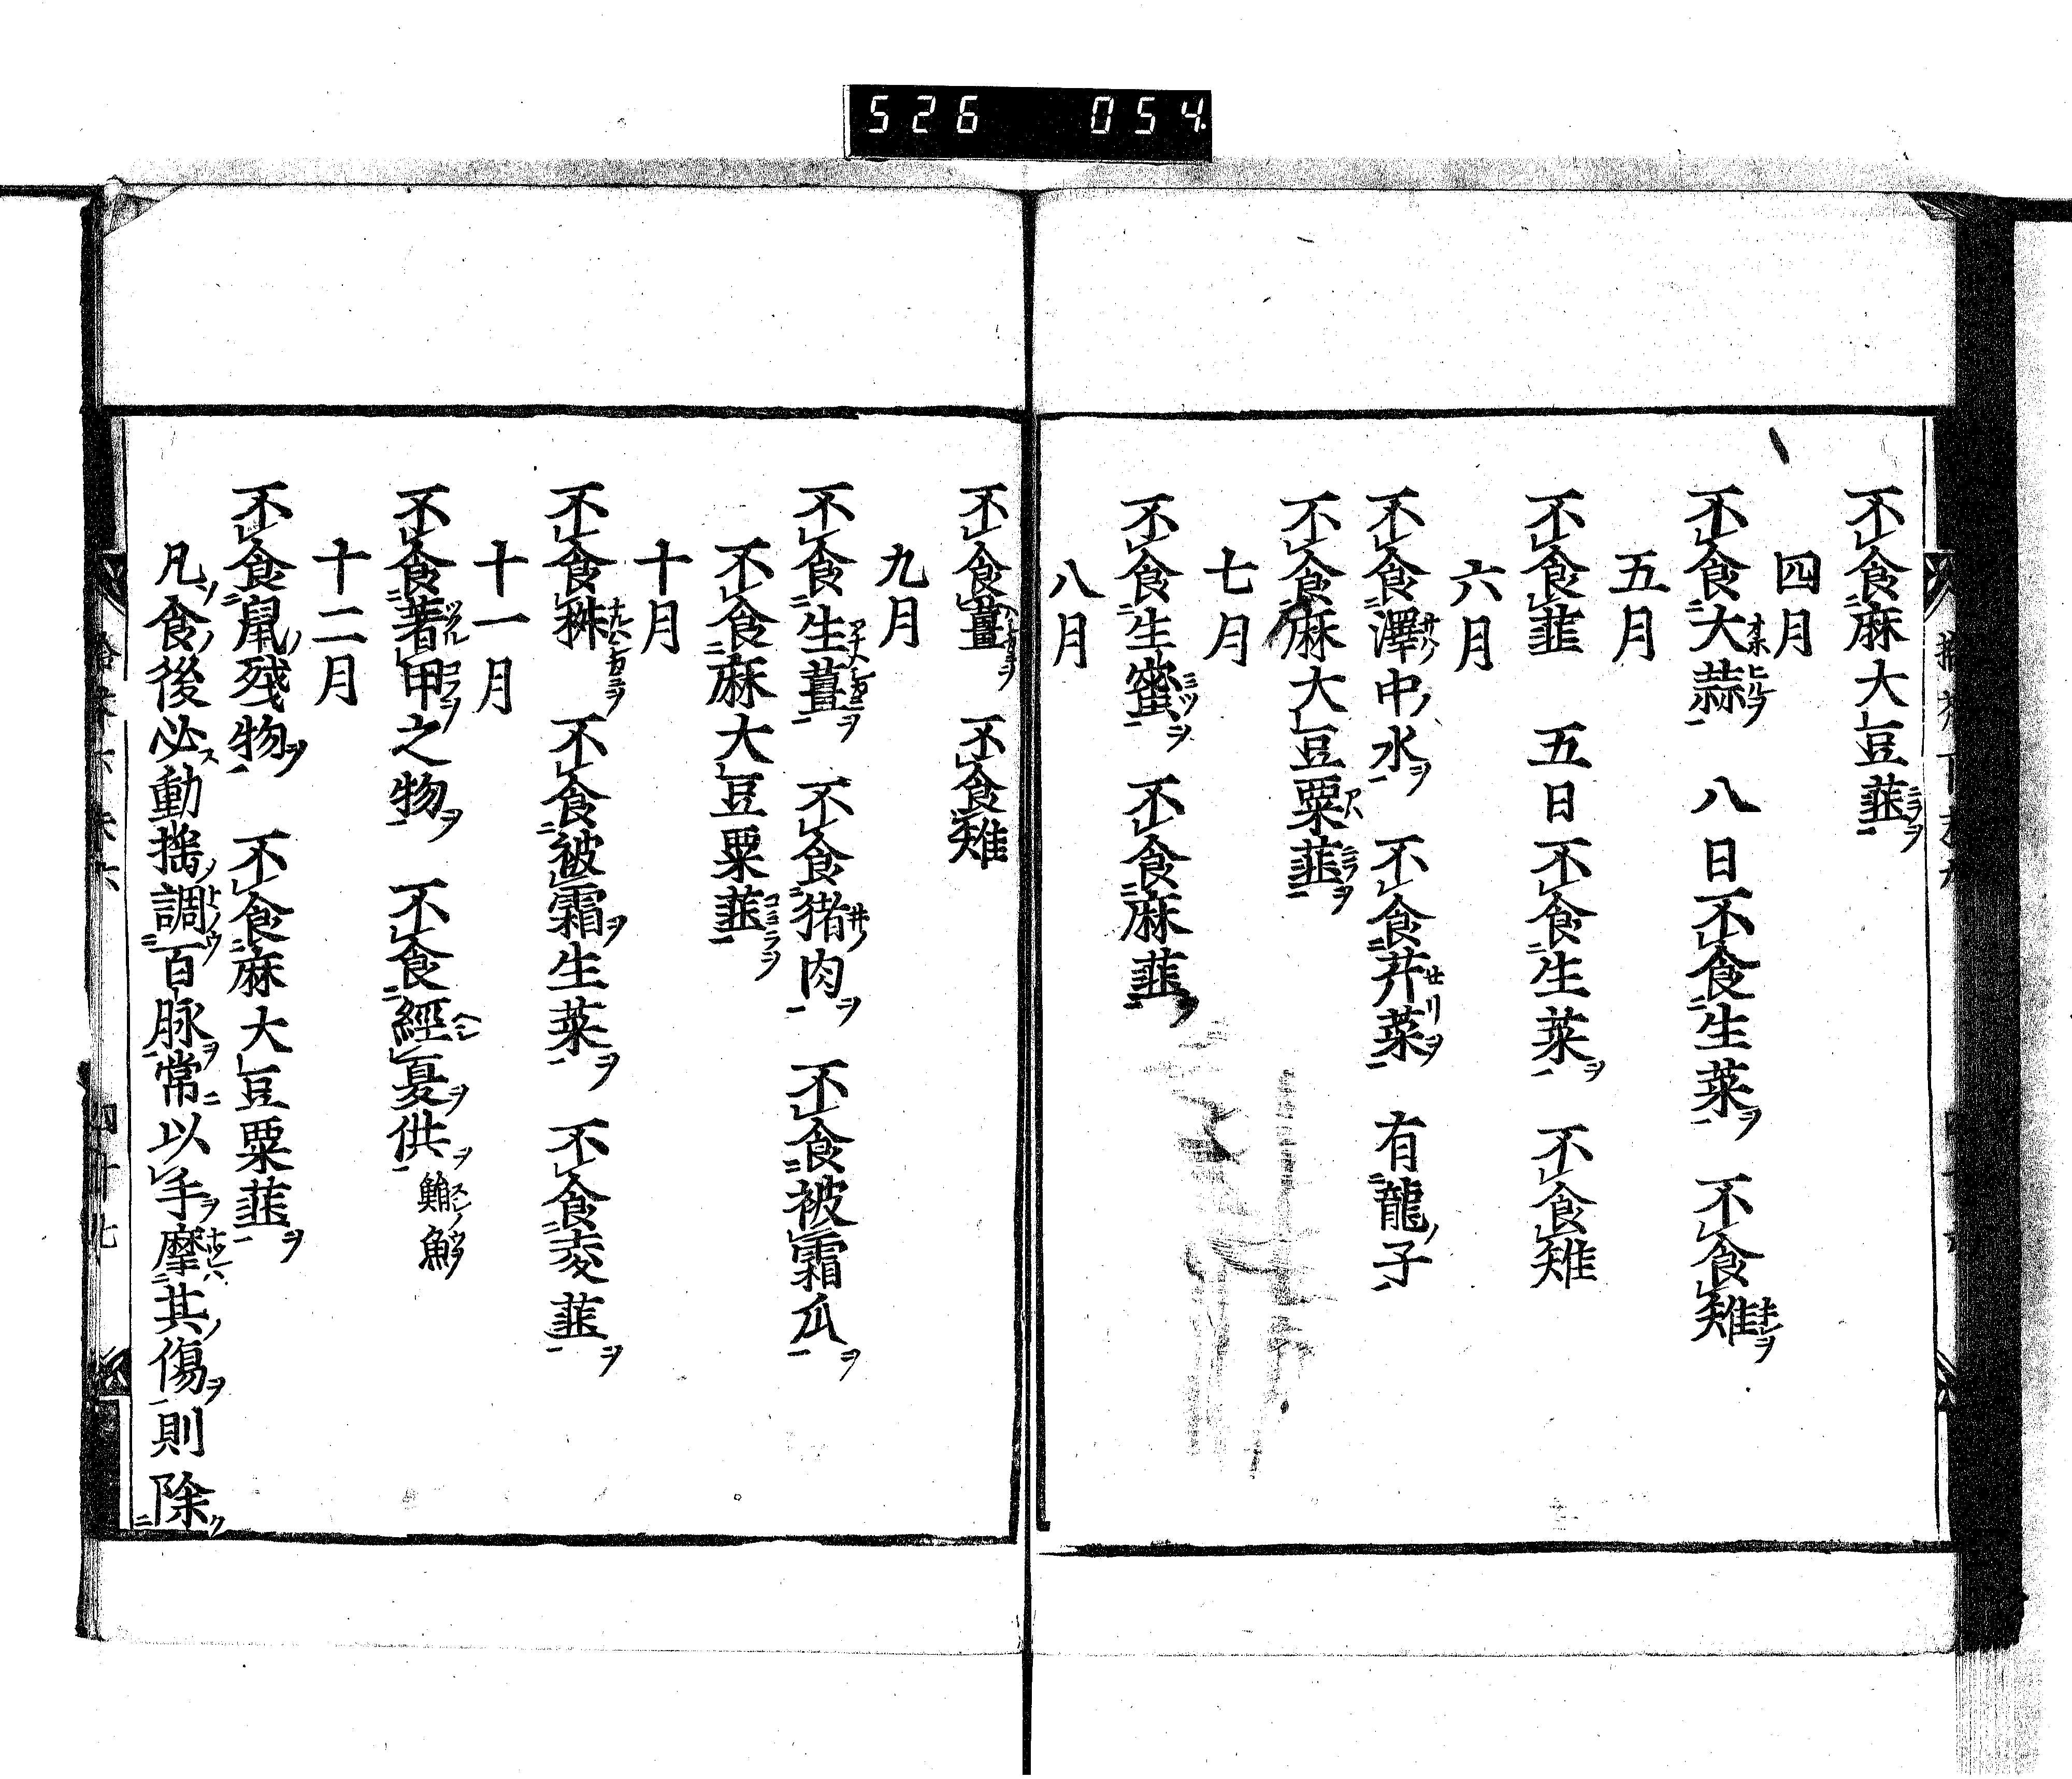 526 054
不食麻大豆韮
四月
不食大蒜 八日不食生菜 不食雉
五月
不食韮 五日不食生菜 不食雉
六月
不食澤中水 不食芹菜 有龍子
不食麻大豆粟韮
七月
不食生蜜 不食麻韮
八月
不食薑 不食雉
九月
不食生薑 不食猪肉 不食被霜瓜
不食麻大豆粟韮
十月
不食椒 不食被霜生菜 不食麦韮
十一月
不食著甲之物 不食經夏供 魚
十二月
不食鼠残物 不食麻大豆粟韮
凡食後必動揺調百脉常以手摩其傷則除